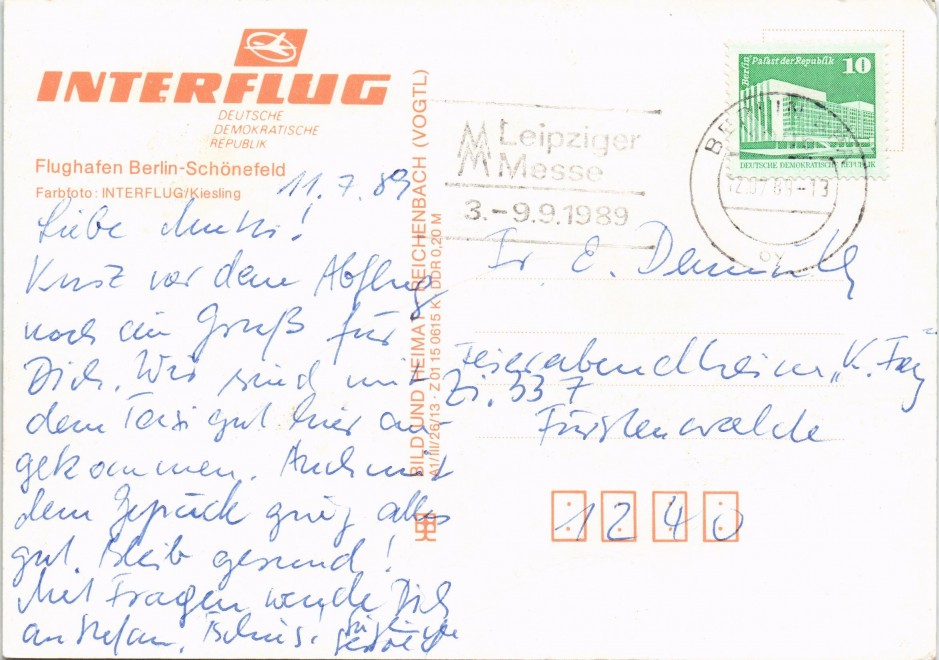 INTERFLUG
DEUTSCHE
DEMOKRATISCHE
REPUBLIK
Flughafen Berlin-Schönefeld
Farbfoto: INTERFLUG/Kiesling
11.7.89
Liebe Mutti!
Kurz vor dem Abflug
noch ein Gruß für
Dich. Wir sind mit
dem Taxi gut hier an-
gekommen. Auch mit
dem Gepäck ging alles
gut. Bleib gesund!
Mit Fragen wende Dich
an Stefan. Tschüs!
BILD UND HEIMAT REICHENBACH (VOGTL)
A1/III/26/13 · Z 01 15 0615 K · DDR 0,20 M
Leipziger
Messe
3.–9.9.1989
Berlin Palast der Republik 10
DEUTSCHE DEMOKRATISCHE REPUBLIK
12.07.89-13
E.
Feierabendheim „K.
Zi. 337
Fürstenwalde
1240